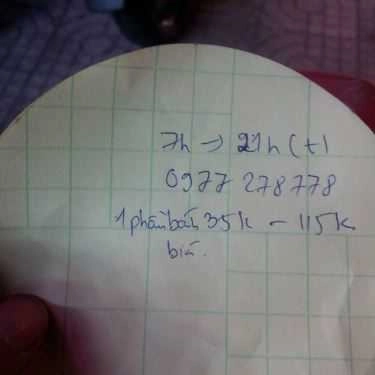 7h → 21h (t)
0977 278778
1 phần bán 35k - 115k
bia.